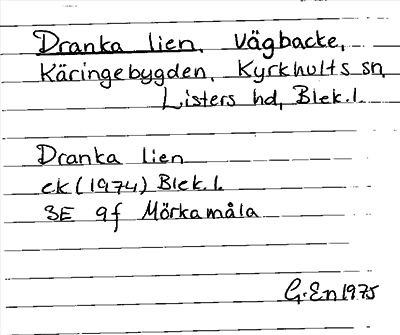 Dranka lien, Vägbacke,
Käringebygden, Kyrkhults sn,
Listers hd, Blek.l.
Dranka lien
ek (1974) Blek.l.
3E 9f Mörkamåla
G.En 1975